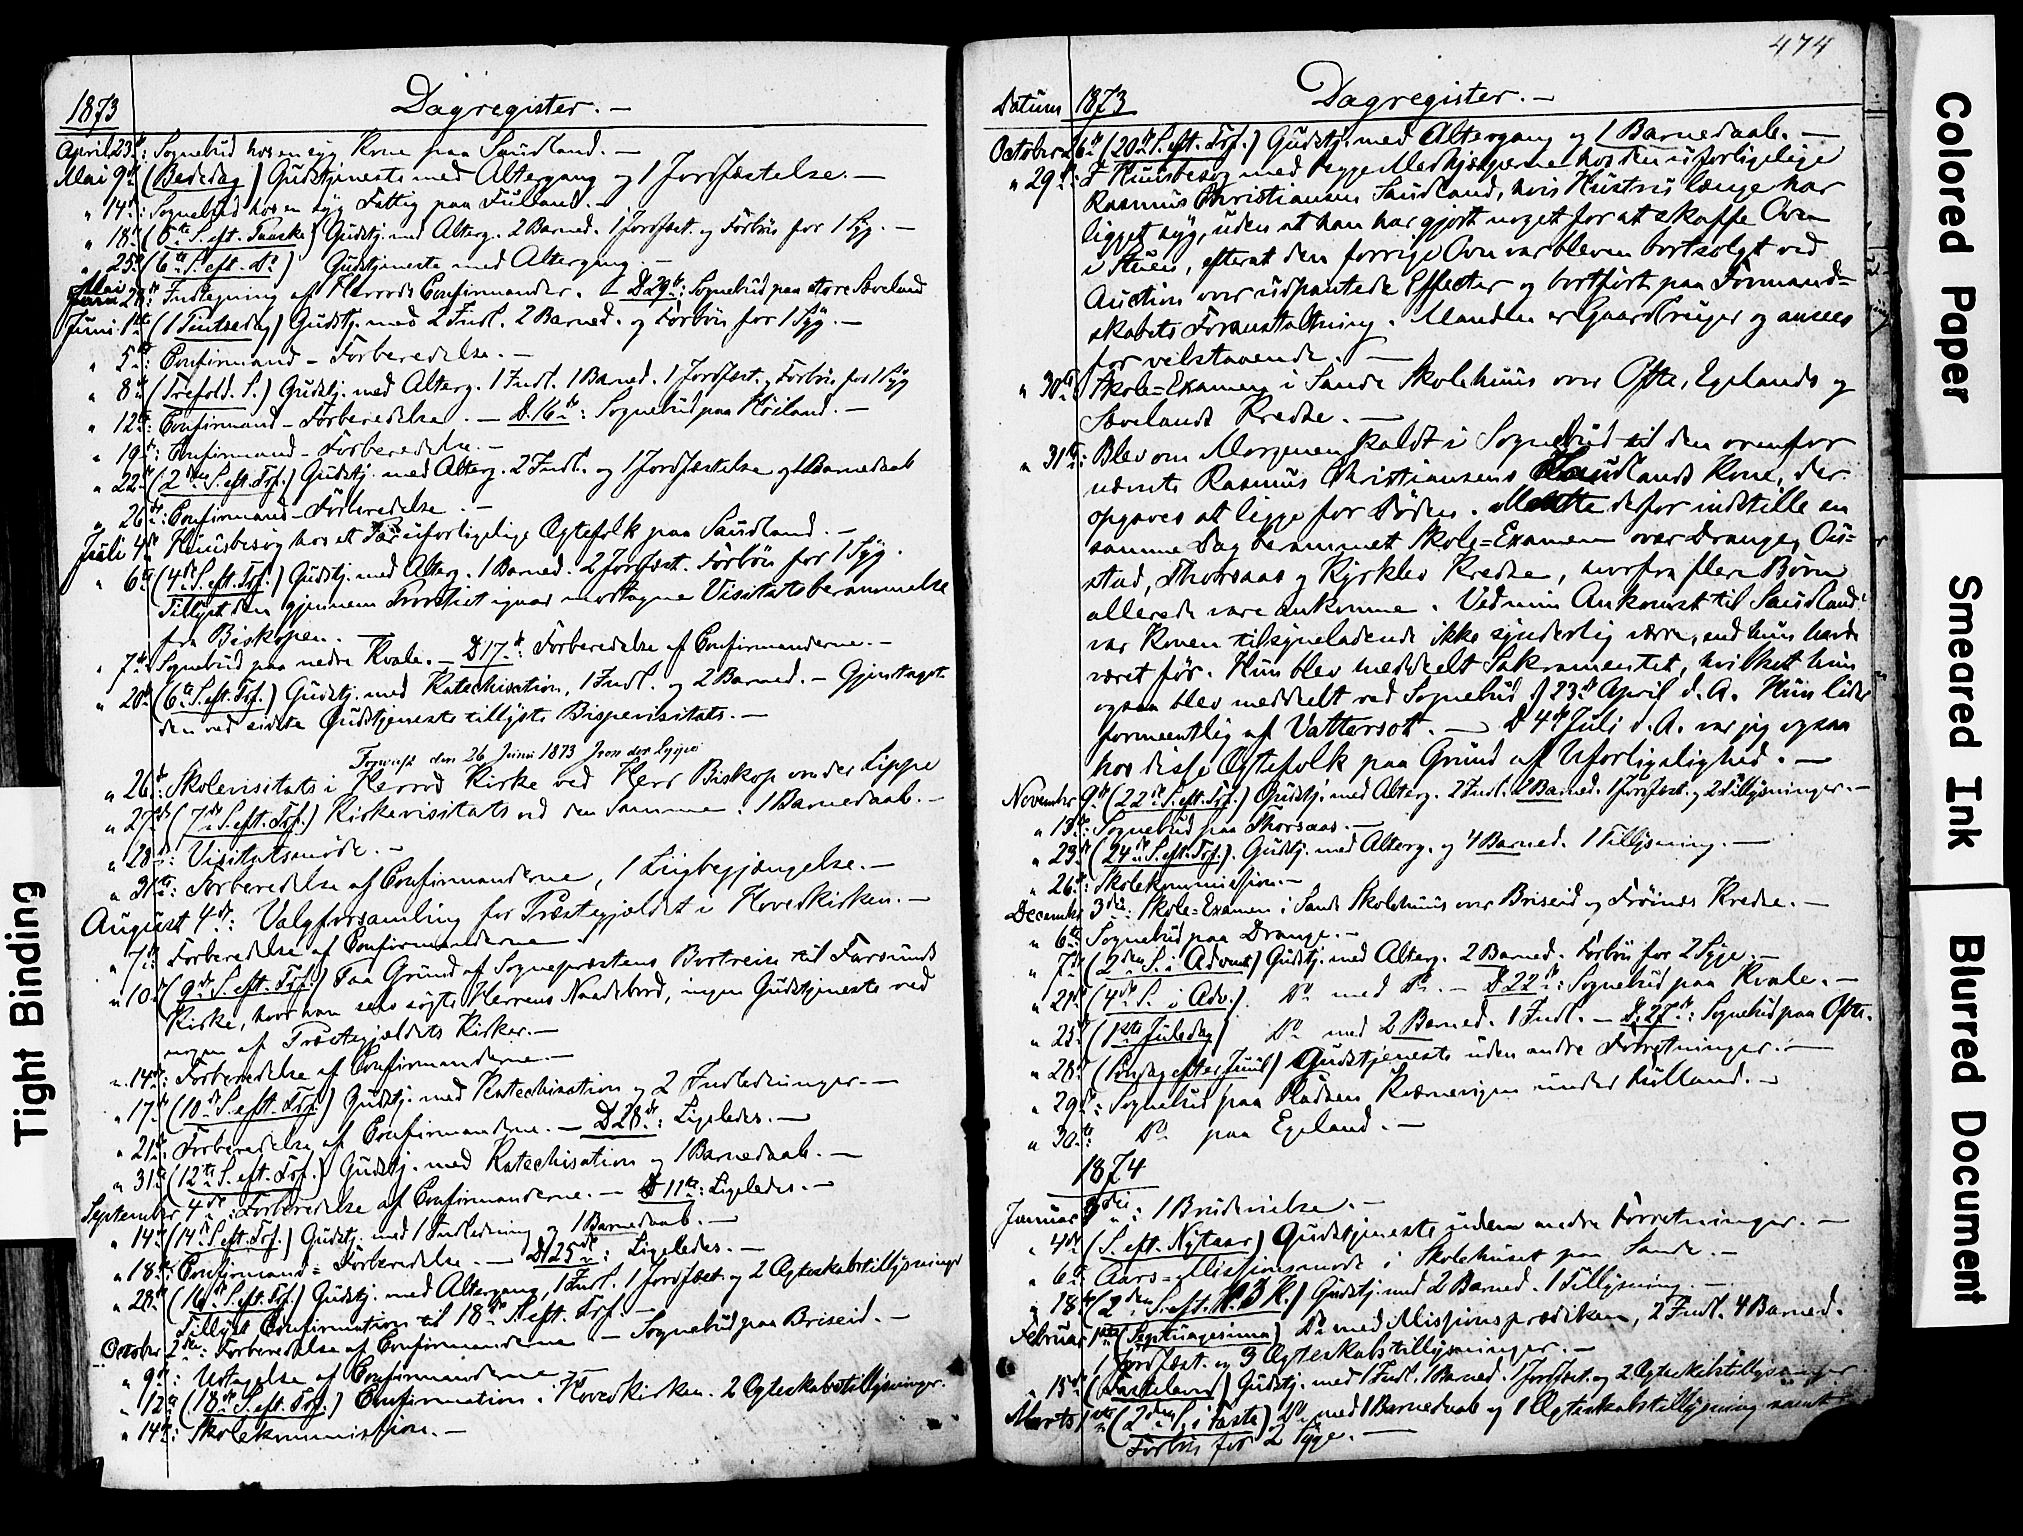 1873 Dagregister. —
April 23de: Sognebud hos en syg Kone paa Saudland. —
Mai 9de (Bededag) Gudstjeneste med Altergang og 1 Jordfæstelse. —
" 14de: Sognebud hos en syg Fattig paa Fuland. —
" 18de (5te S. eft. Paaske) Gudstj. med Alterg. 2 Barned. 1 Jordfæst. og Forbøn for 1 Syg. —
" 25de (6te S. eft. Do) Gudstjeneste med Altergang. —
Mai 28de: Indtegning af Herrods Confirmander. — D. 29de: Sognebud paa store Søveland
Juni 1ste (1 Pintsedag) Gudstj. med 2 Indl. 2 Barned. og Forbøn for 1 Syg. —
" 5te: Confirmand-Forberedelse. —
" 8de (Trefold. S.) Gudstj. med Alterg. 1 Indl. 1 Barned. 1 Jordfæst. og Forbøn for 1 Syg
" 12te: Confirmand-Forberedelse. — D. 16de: Sognebud paa Høiland. —
" 19de: Confirmand-Forberedelse. —
" 22de (2den S. eft. Tref.) Gudstj. med Alterg. 2 Indl. og 1 Jordfæstelse og 1 Barnedaab
" 26de: Confirmand-Forberedelse. —
Juli 4de Huusbesøg hos et Par uforligelige Ægtefolk paa Saudland. —
" 6te (4de S. eft. Tref.) Gudstj. med Alterg. 1 Barned. 2 Jordfæst. Forbøn for 1 Syg.
Tillyst den gjennem Provstiet igaar modtagne Visitatsberammelse
fra Biskopen. —
" 7de Sognebud paa nedre Kvale. — D. 17de: Forberedelse af Confirmanderne. —
" 20de (6te S. eft. Tref.) Gudstj. med Katechisation, 1 Indl. og 2 Barned. — Gjenttaget
den ved sidste Gudstjeneste tillyste Bispevisitats. —
den 26 Juni 1873 von der Lippe
" 26de: Skolevisitats i Herrod Kirke ved Herr Biskop von der Lippe
" 27de (7de S. eft. Tref.) Kirkevisitats ved den Samme. 1 Barnedaab. —
" 28de: Visitatsmøde. —
" 31te: Forberedelse af Confirmanderne, 1 Liigbegjængelse. —
August 4de: Valgforsamling for Præstegjeldet i Hovedkirken. —
" 7de: Forberedelse af Confirmanderne.
" 10de (9de S. eft. Tref.) Paa Grund af Sognepræstens Bortreise til Farsunds
Kirke, hvor han selv søgte Herrens Naadebord, ingen Gudstjeneste ved
nogen af Præstegjeldets Kirker. —
" 14de: Forberedelse af Confirmanderne. —
" 17de (10de S. eft. Tref.) Gudstj. med Katechisation og 2 Indledninger. —
" 21de: Forberedelse af Confirmanderne. — D. 28de: Ligeledes. —
" 31te (12te S. eft. Tref.) Gudstj. med Katechisation og 1 Barnedaab. —
September 4de: Forberedelse af Confirmanderne. — D. 11te: Ligeledes. —
" 14de (14de S. eft. Tref.) Gudstj. med 1 Indledning og 1 Barnedaab. —
" 18de: Confirmand=Forberedelse. — D. 25de: Ligeledes. —
" 28de (16de S. eft. Tref.) Gudstj. med Altergang, 1 Indl. 1 Jordfæst. og 2 Ægteskabstillysninger
Tillyst Confirmation til 18de S. eft. Tref. —
October 2den: Forberedelse af Confirmanderne — Sognebud paa Briseid. —
" 9de: Udtagelse af Confirmanderne
" 12te (18de S. eft. Tref.) Confirmation i Hovedkirken. 2 Ægteskabstillysninger.
" 14de: Skolekommission. —
474
Datum 1873 Dagregister. —
October 26de (20de S. eft. Tref.) Gudstj. med Altergang og 1 Barnedaab. —
" 29de: I Huusbesøg med begge Medhjælperne hos den uforligelige
Rasmus Christiansen Saudland, hvis Hustru længe har
ligget syg, uden at han har gjort noget for at skaffe Ovn
i Stuen, efterat den forrige Ovn var bleven bortsolgt ved
Auction over udpantede Effecter og bortført paa Formand=
skabets Foranstaltning. Manden er Gaardbruger og ansees
for velstaaende. —
" 30te Skole=Examen i Sande Skolehuus over Ofte, Egelands og
Søvelands Kredse. —
" 31te: Blev om Morgenen kaldt i Sognebud til den ovenfor
nævnte Rasmus Christiansens Saudlands Kone, der
opgaves at ligge for Døden. Maatte derfor indstille en
samme Dag berammet Skole=Examen over Drange, Ou=
stad, Thorsaas og Kjørklev Kredse, hvorfra flere Børn
allerede vare ankomne. Ved min Ankomst til Saudland
var Konen tilsyneladende ikke synderlig værre, end hun havde
været før. Hun blev meddeelt Sakramentet, hvilket hun
ogsaa blev meddelt ved Sognebud d. 23de April d. A. Hun lider
formeentlig af Vattersot. — D. 4de Juli d. A. var jeg ogsaa
hos disse Ægtefolk paa Grund af Uforligelighed. —
November 9de (22de S. eft. Tref.) Gudstj. med Alterg. 2 Indl. 2 Barned. 1 Jordfæst. og 2 Tillysninger. —
" 13de: Sognebud paa Thorsaas. —
" 23de (24de S. eft. Tref.). Gudstj. med Alterg. og 4 Barned. 1 Tillysning. —
" 26de: Skolekommission. —
December 3die: Skole=Examen i Sande Skolehuus over Briseid og Frøines Kredse. —
" 6te: Sognebud paa Drange. —
" 7de (2den S. i Advent) Gudstj. med Alterg. 2 Barned. Forbøn for 2 Syge. —
" 21de (4de S. i Adv.). Do med Do. — D. 22de: Sognebud paa Kvale. —
" 25de (1ste Juledag) Do med 2 Barned. 1 Indl. — D. 27de: Sognebud paa Ofte.
" 28de (Søndag efter Juul) Gudstjeneste uden andre Forretninger. —
" 29de: Sognebud paa Pladsen Kværnevigen under Fulland. —
" 30te: Do paa Egeland. —
1874
Januar 3die: 1 Brudevielse. —
" 4de (S. eft. Nytaar) Gudstjeneste uden andre Forretninger. —
" 6te Aars=Missionsmøde i Skolehuset paa Sande. —
" 18de (2den S. eft. H. 3 K.) Gudstj. med 2 Barned. 1 Tillysning. —
Februar 1ste (Septuagesima) Do med Missionsprædiken, 2 Indl. 4 Barned.
1 Jordfæst. og 3 Ægteskabstillysninger. —
" 15de (Fastelavn) Gudstj. med 1 Indl. 1 Barned. 1 Jordfæst. og 2 Ægteskabstillysninger
Marts 1ste (2den S. i Faste) Do med 1 Barnedaab og 1 Ægteskabstillysning samt
Forbøn for 2 Syge. —
Tight Binding
Colored Paper
Smeared Ink
Blurred Document